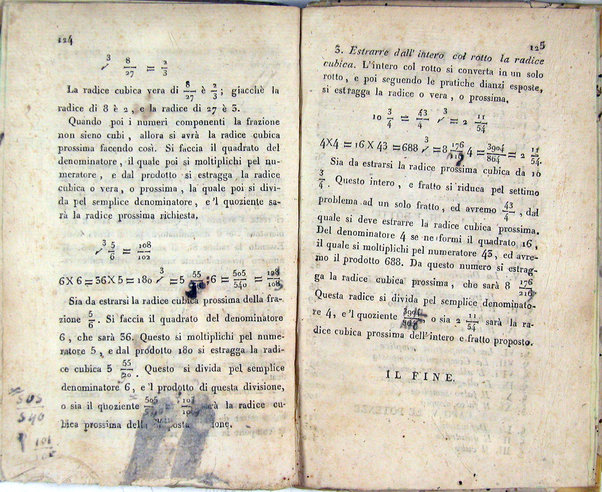 124
3
√ 8/27 = 2/3
La radice cubica vera di 8/27 è 2/3; giacchè la
radice di 8 è 2, e la radice di 27 è 3.
Quando poi i numeri componenti la frazione
non sieno cubi, allora si avrà la radice cubica
prossima facendo così. Si faccia il quadrato del
denominatore, il quale poi si moltiplichi pel nu-
meratore, e dal prodotto si estragga la radice
cubica o vera, o prossima, la quale poi si divi-
da pel semplice denominatore, e 'l quoziente sa-
rà la radice prossima richiesta.
3
√ 5/6 = 108/102
6 X 6 = 36 X 5 = 180 √ = 5 55 : 6 = 505/540 =
Sia da estrarsi la radice cubica prossima della fra-
zione 5/6. Si faccia il quadrato del denominatore
6, che sarà 36. Questo si moltiplichi pel nume-
ratore 5, e dal prodotto 180 si estragga la radi-
ce cubica 5 55. Questo si divida pel semplice
denominatore 6, e 'l prodotto di questa divisione,
o sia il quoziente sarà la radice cu-
bica prossima della
505
540
125
3. Estrarre dall' intero col rotto la radice
cubica. L'intero col rotto si converta in un solo
rotto, e poi seguendo le pratiche dianzi esposte,
si estragga la radice o vera, o prossima.
10 3/4 = 43/4 √ = 2 11/54
4X4 = 16 X 43 = 688 √ = 8 176 4 = 3904/864 = 2 11/54.
Sia da estrarsi la radice prossima cubica da 10
3/4. Questo intero, e fratto si riduca pel settimo
problema ad un solo fratto, ed avremo 43/4, dal
quale si deve estrarre la radice cubica prossima.
Del denominatore 4 se ne formi il quadrato 16,
il quale si moltiplichi pel numeratore 43, ed avre-
mo il prodotto 688. Da questo numero si estrag-
ga la radice cubica prossima, che sarà 8 176/216
Questa radice si divida pel semplice denominato-
re 4, e 'l quoziente o sia 2 11/54 sarà la ra-
dice cubica prossima dell'intero e fratto proposto.
IL FINE.